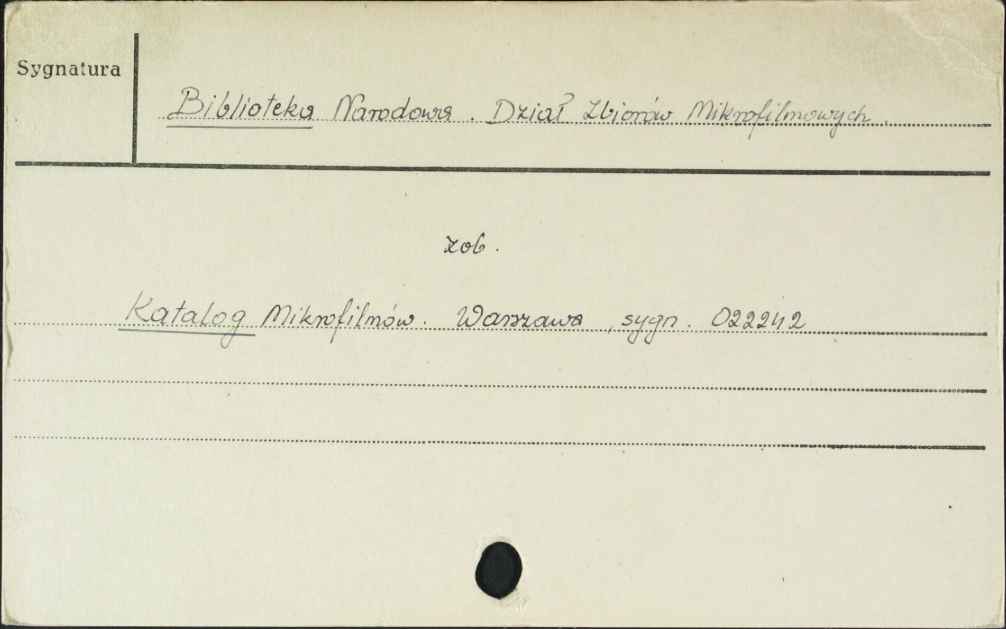 Sygnatura
Biblioteka Narodowa. Dział Zbiorów Mikrofilmowych.
zob.
Katalog Mikrofilmów. Warszawa, sygn. 022242